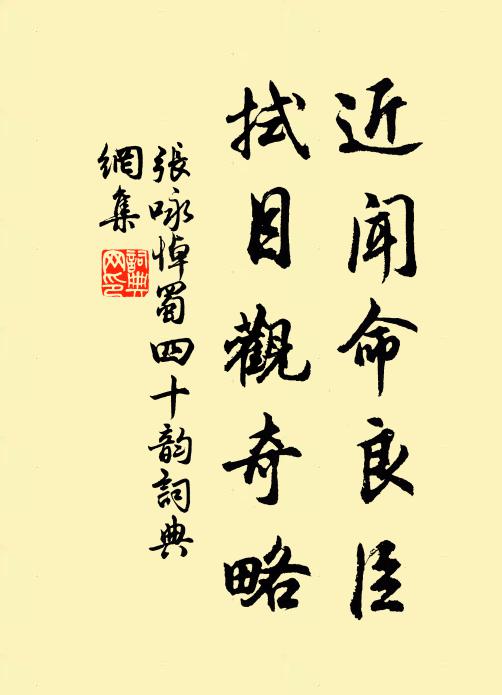 近聞命良臣
拭目觀奇略
張咏悼蜀四十韵詞典
網集
詞典网印